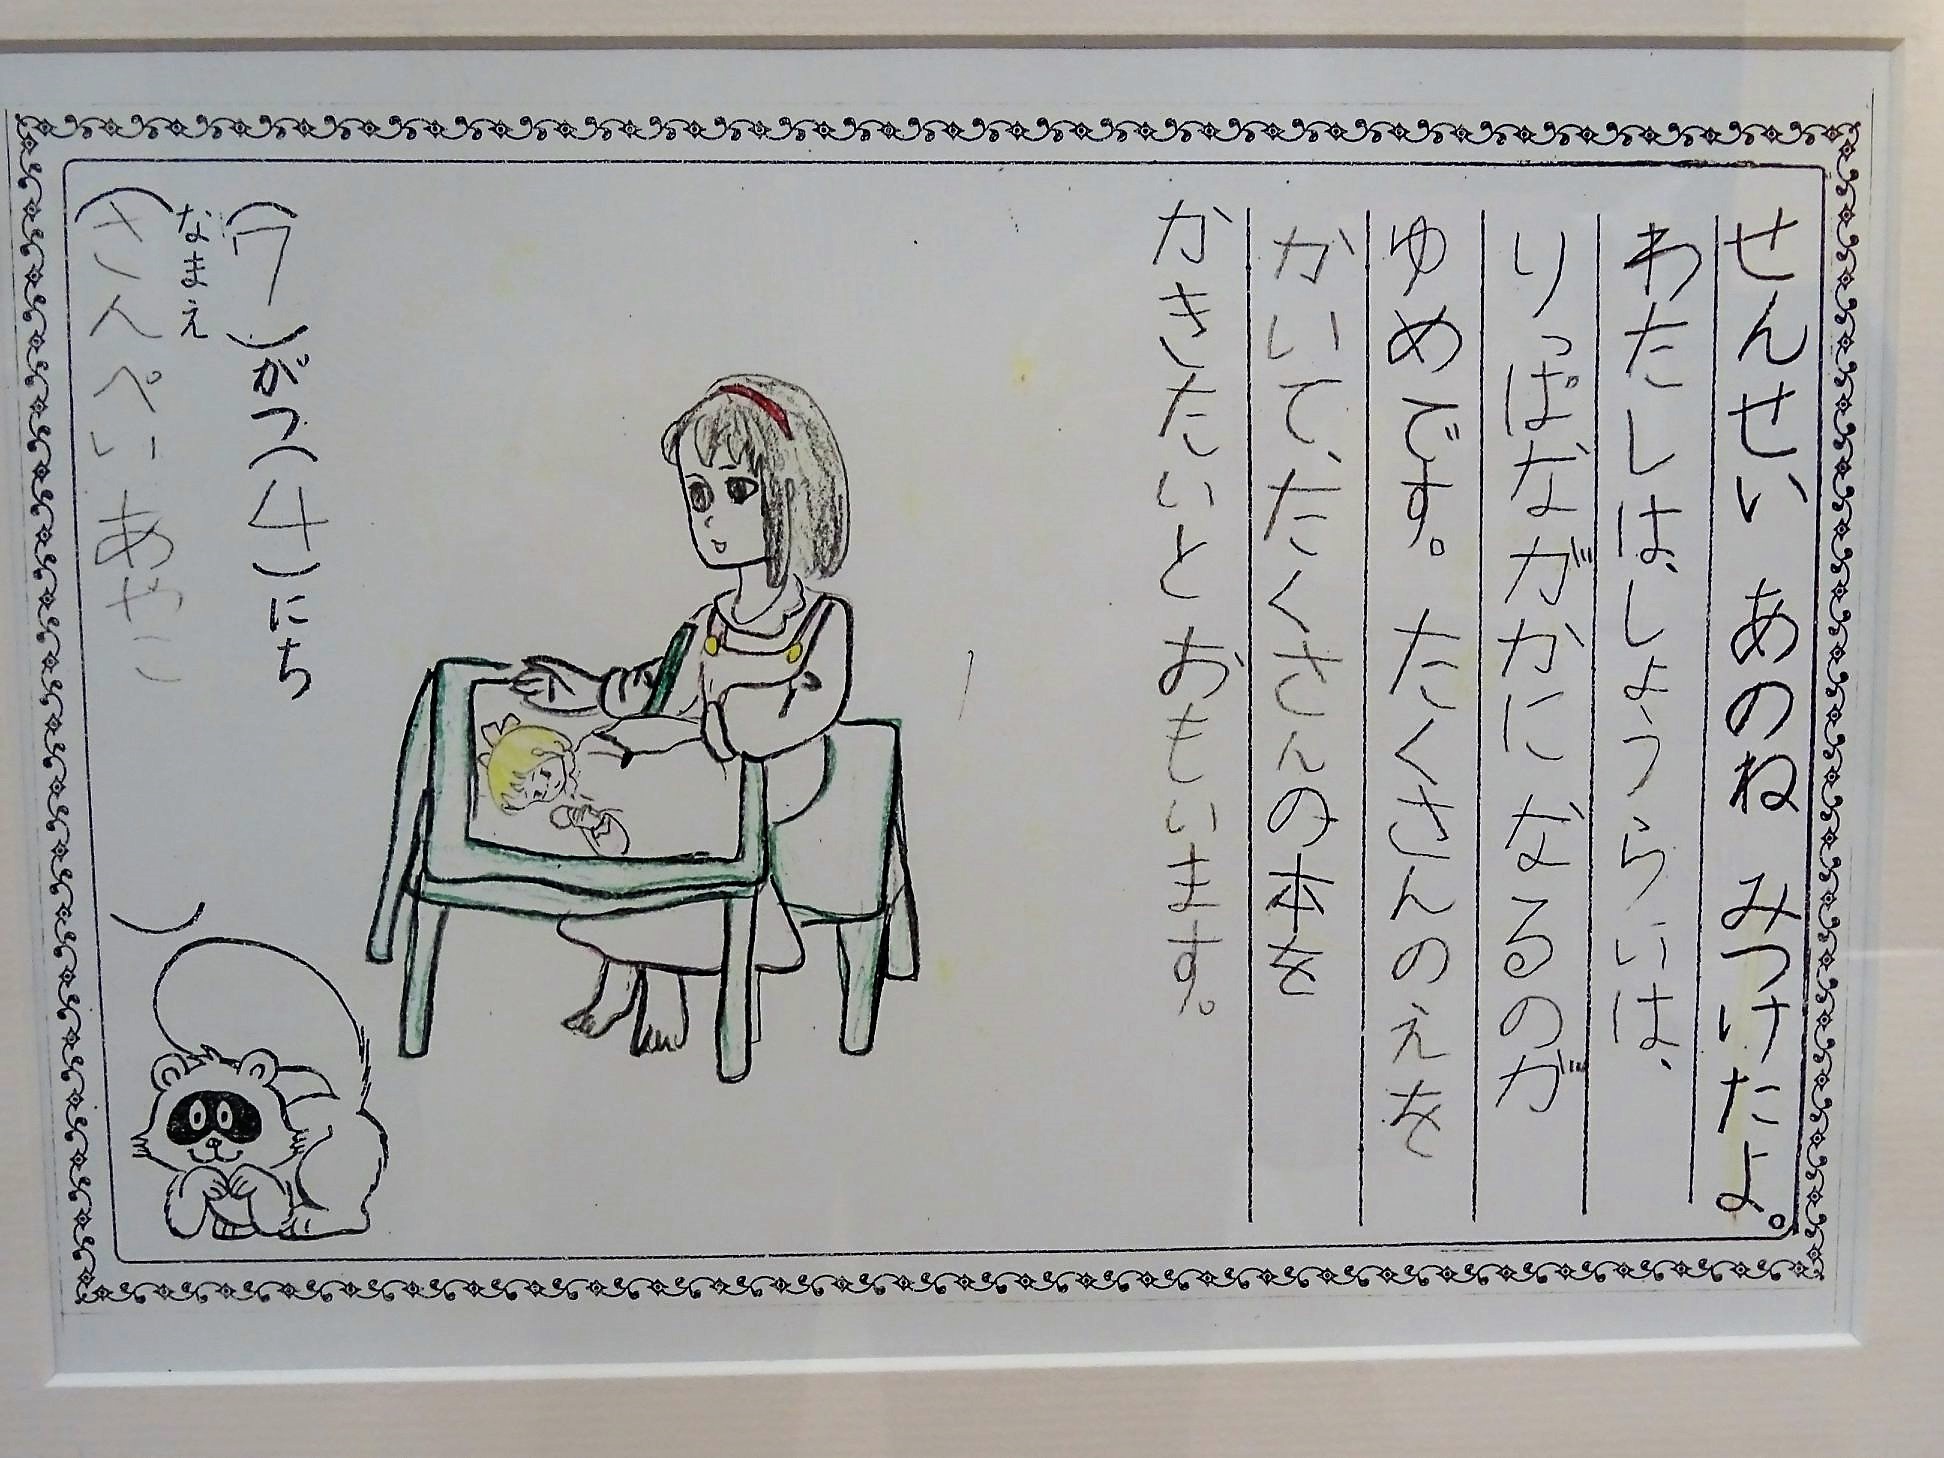 せんせい あのね みつけたよ。
わたしは、しょうらいは、
りっぱながかになるのが
ゆめです。たくさんのえを
かいて、たくさんの本を
かきたいとおもいます。
(7)がつ(4)にち
なまえ
(さんぺい あやこ)